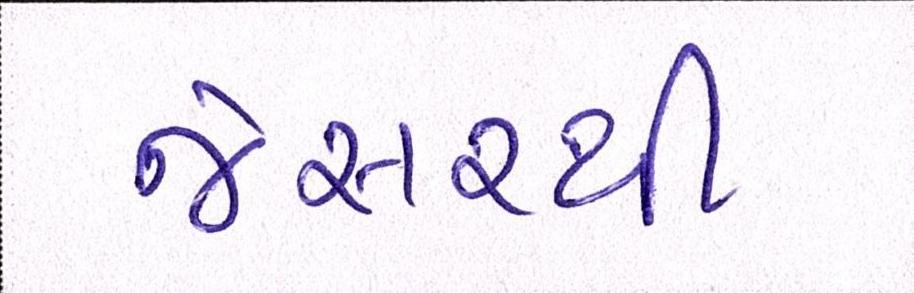 જેસરથી